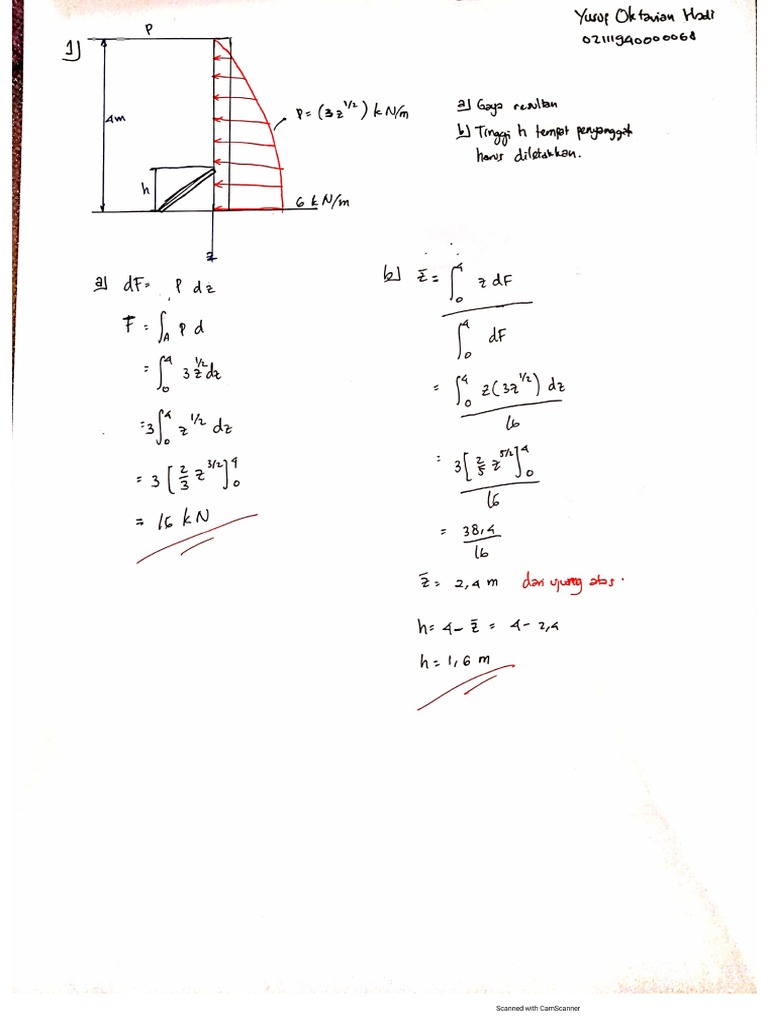 Yusuf Oktavian Hadi
02111940000068
1)
P
4m
P = (3z^1/2) kN/m
h
6 kN/m
z
a) Gaya resultan
b) Tinggi h tempat penyanggah
harus diletakkan.
a) dF = P dz
F = ∫_A P d
= ∫_0^4 3z^1/2 dz
= 3∫_0^4 z^1/2 dz
= 3 [2/3 z^3/2]_0^4
= 16 kN
b) z̄ = ∫_0^4 z dF / ∫_0^4 dF
= ∫_0^4 z(3z^1/2) dz / 16
= 3[2/5 z^5/2]_0^4 / 16
= 38,4 / 16
z̄ = 2,4 m dari ujung atas.
h = 4 - z̄ = 4 - 2,4
h = 1,6 m
Scanned with CamScanner